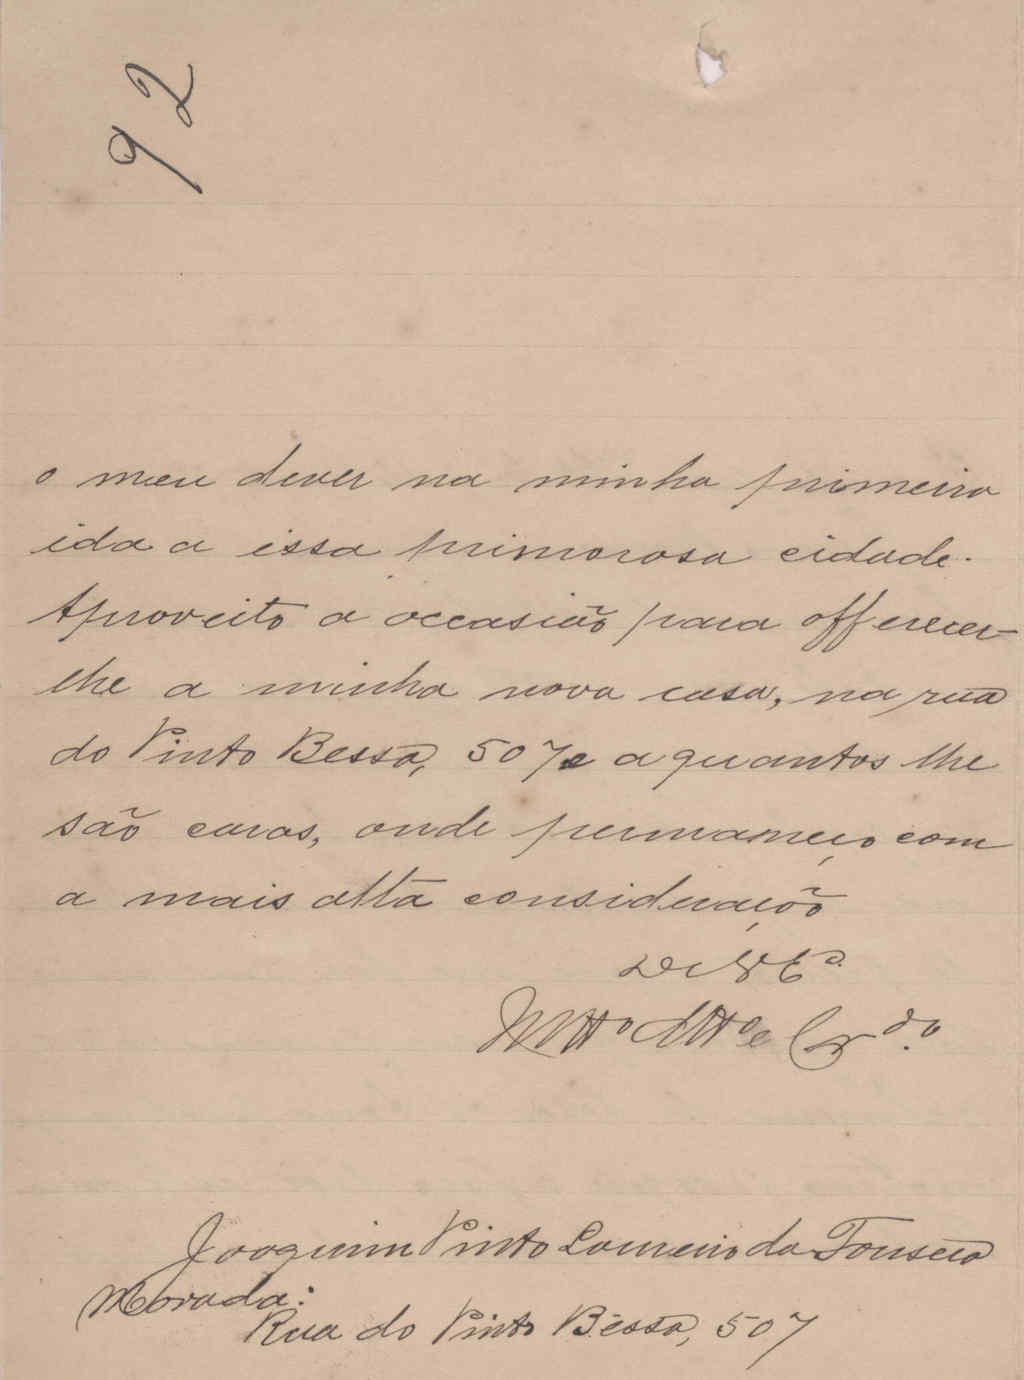 92
o meu dever na minha primeira
ida a essa primorosa cidade.
Aproveito a occasião para offerecer-
lhe a minha nova casa, na rua
do Pinto Bessa, 507 e a quantos lhe
são caros, onde permaneço com
a mais alta consideração
De V Ex.ª
Mtto Atto e Cr.do
Joaquim Pinto Loureiro da Fonseca
Morada:
Rua do Pinto Bessa, 507